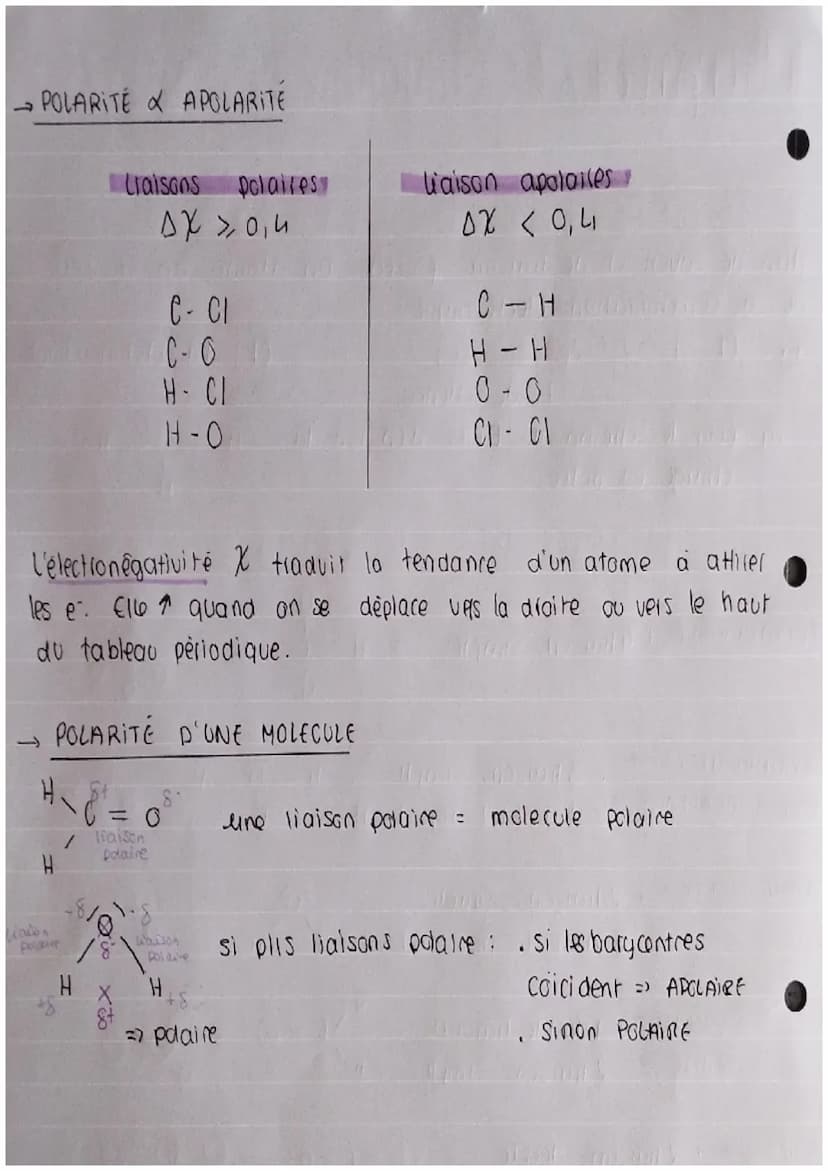 → POLARITÉ & APOLARITÉ
Liaisons polaires
ΔX ⩾ 0,4
C - Cl
C - O
H - Cl
H - O
liaison apolaires
ΔX < 0,4
C — H
H — H
O - O
Cl - Cl
L'électronégativité X traduit la tendance d'un atome à attirer
les e-. Elle ↑ quand on se déplace vers la droite ou vers le haut
du tableau périodique.
→ POLARITÉ D'UNE MOLECULE
H δ+ δ-
C = O une liaison polaire = molecule polaire
liaison
polaire
H
-δ O -δ
liaison
polaire
δ-
liaison
polaire
si plls liaisons polaire : . si les barycentres
coicident => APOLAIRE
. sinon POLAIRE
H X H
+δ δ+ +δ
=> polaire